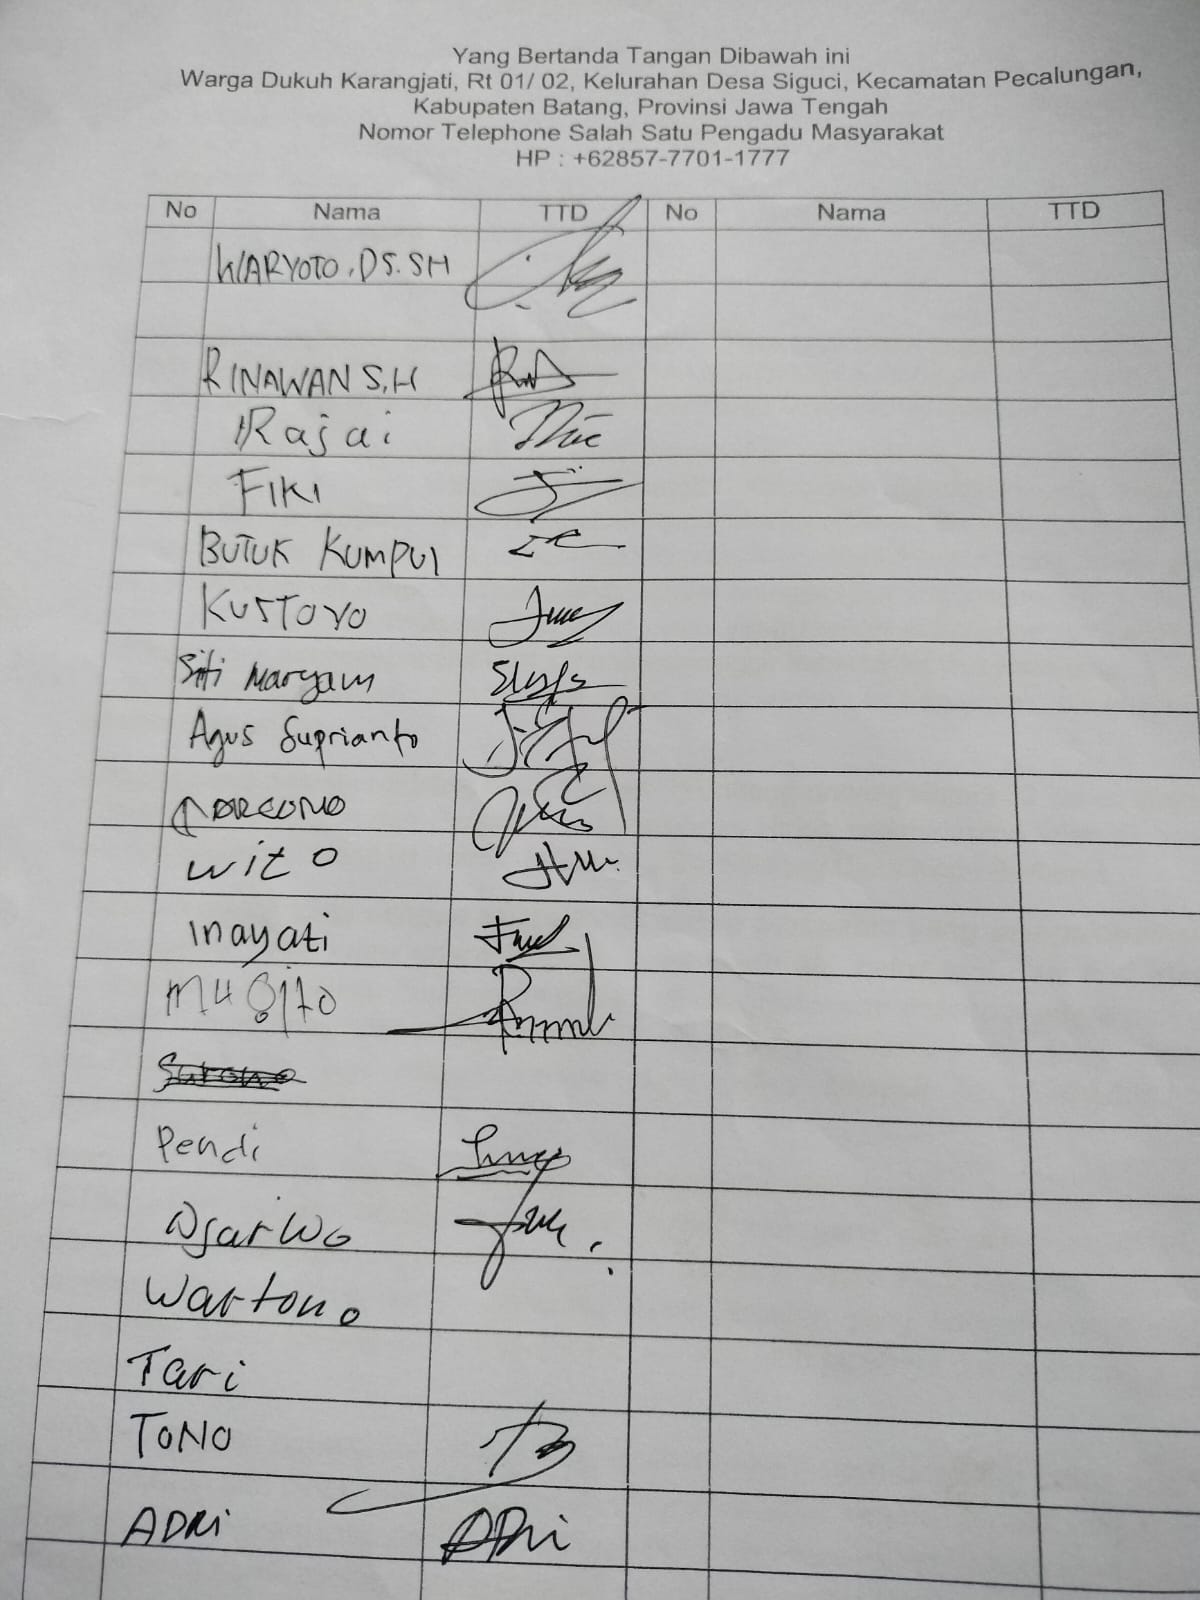 Yang Bertanda Tangan Dibawah ini
Warga Dukuh Karangjati, Rt 01/ 02, Kelurahan Desa Siguci, Kecamatan Pecalungan,
Kabupaten Batang, Provinsi Jawa Tengah
Nomor Telephone Salah Satu Pengadu Masyarakat
HP : +62857-7701-1777
No Nama TTD No Nama TTD
WARYOTO, DS. SH
RINAWAN S,H
Rajai
FIKI
BUTUK KUMPUL
KUSTOYO
Siti Maryam
Agus Suprianto
wito
inayati
mugito
Pendi
Wartono
Tari
TONO
ADRI ADRi